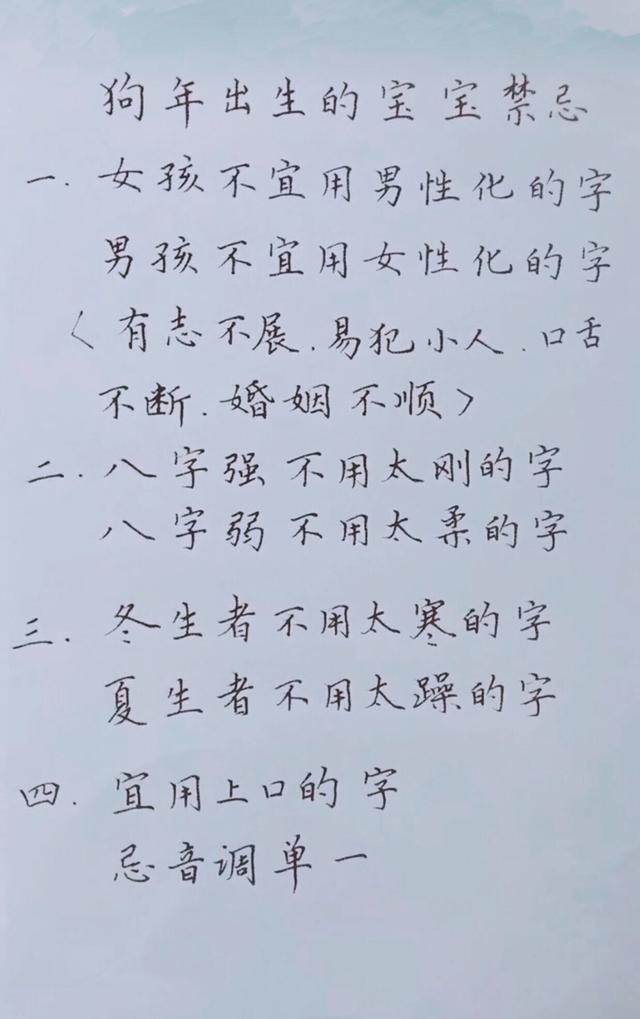 狗年出生的宝宝禁忌
一.女孩不宜用男性化的字
男孩不宜用女性化的字
〈有志不展.易犯小人.口舌
不断.婚姻不顺〉
二.八字强不用太刚的字
八字弱不用太柔的字
三.冬生者不用太寒的字
夏生者不用太躁的字
四.宜用上口的字
忌音调单一